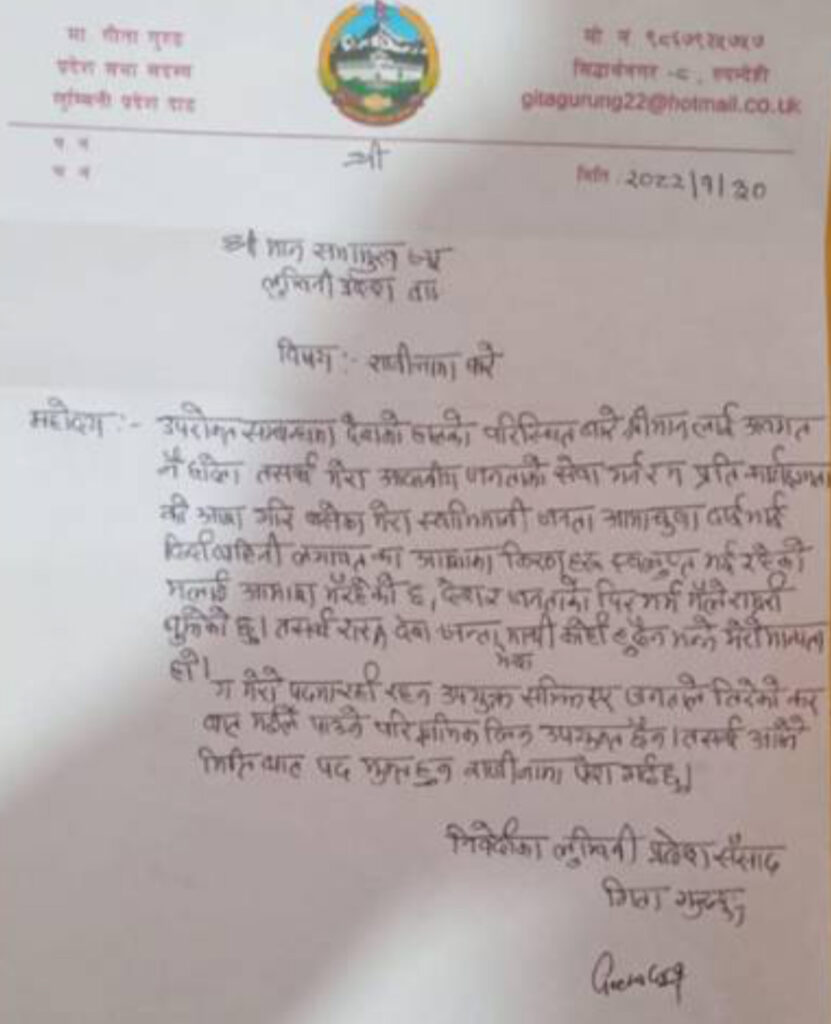 मा गीता गुरुङ
प्रदेश सभा सदस्य
लुम्बिनी प्रदेश दाङ
सिद्धार्थनगर -८, रुपन्देही
gitagurung22@hotmail.co.uk
प. न
च न
श्री
मिति: २०२२/१/३०
श्री मान सभामुख ज्यू
लुम्बिनी प्रदेश दाङ
विषय :- राजीनामा बारे
महोदय :- उपरोक्त सम्बन्धमा देशको परिस्थिति बारे श्रीमान लाई अवगत
नै तसर्थ मेरा आदरणीय जनताको सेवा गर्न र म प्रति
की आशा गरि बसेका मेरा स्वाभिमानी जनता आमाबुवा दाईभाई
दिदीबहिनी लगायत का आशाका किरणहरू भई रहेको
मलाई आभाष भैरहेको छ, देश र जनताको पिर मर्म मैले राम्ररी
बुझेकी छु। तसर्थ देश जनता माथी कोही हुदैन भन्ने मेरो मान्यता
हो।
म मेरो पदमा रही रहन उपयुक्त जनताले तिरेको कर
बाट मईले पाउने पारिश्रमिक लिन उपयुक्त छैन। तसर्थ आजै
मिति बाट पद मुक्त हुन राजीनामा पेश गर्दछु।
निवेदीका लुम्बिनी प्रदेश सांसद
गिता गुरुङ